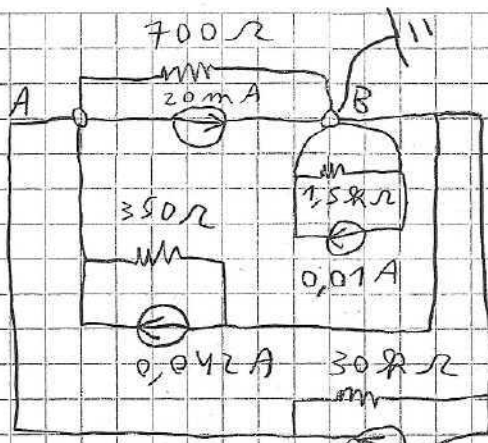 700Ω
20mA
A
B
350Ω
1,5kΩ
0,01A
0,042A
30kΩ